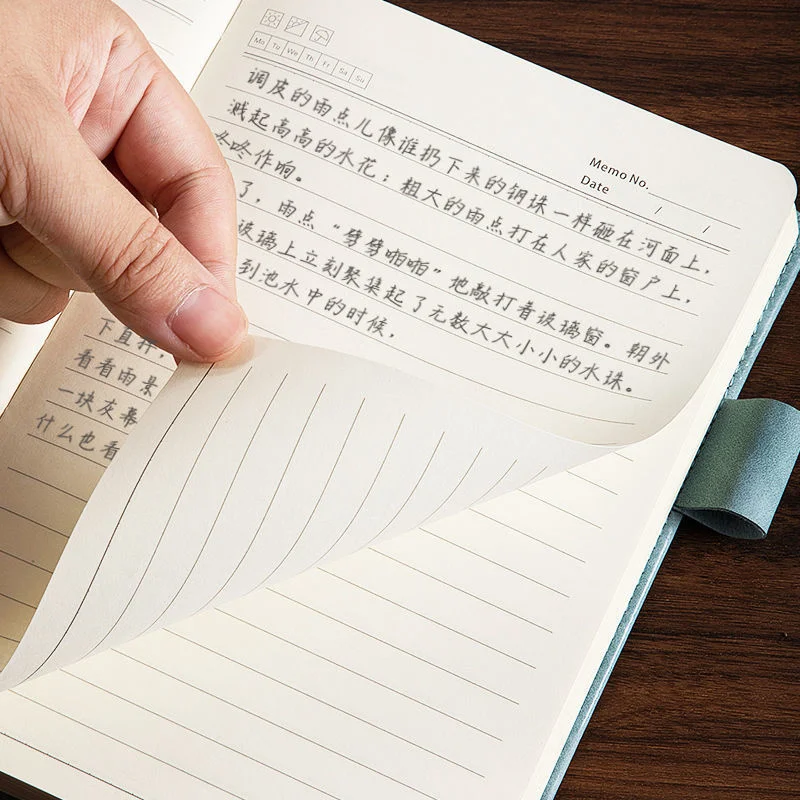 Mo Tu We Th Fr Sa Su
Memo No.
Date / /
调皮的雨点儿像谁扔下来的钢珠一样砸在河面上，
溅起高高的水花；粗大的雨点打在人家的窗户上，
咚作响。
了，雨点“劈劈啪啪”地敲打着玻璃窗。朝外
玻璃上立刻聚集起了无数大大小小的水珠。
到池水中的时候，
下直
看看雨景
一块灰幕
什么也看